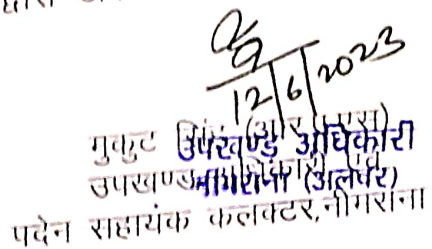 12/6/2023
मुकुट सिंह (आर.ए.एस)
उपखण्ड अधिकारी
उपखण्ड
नीमराना (अलवर)
पदेन सहायक कलक्टर, नीमराना